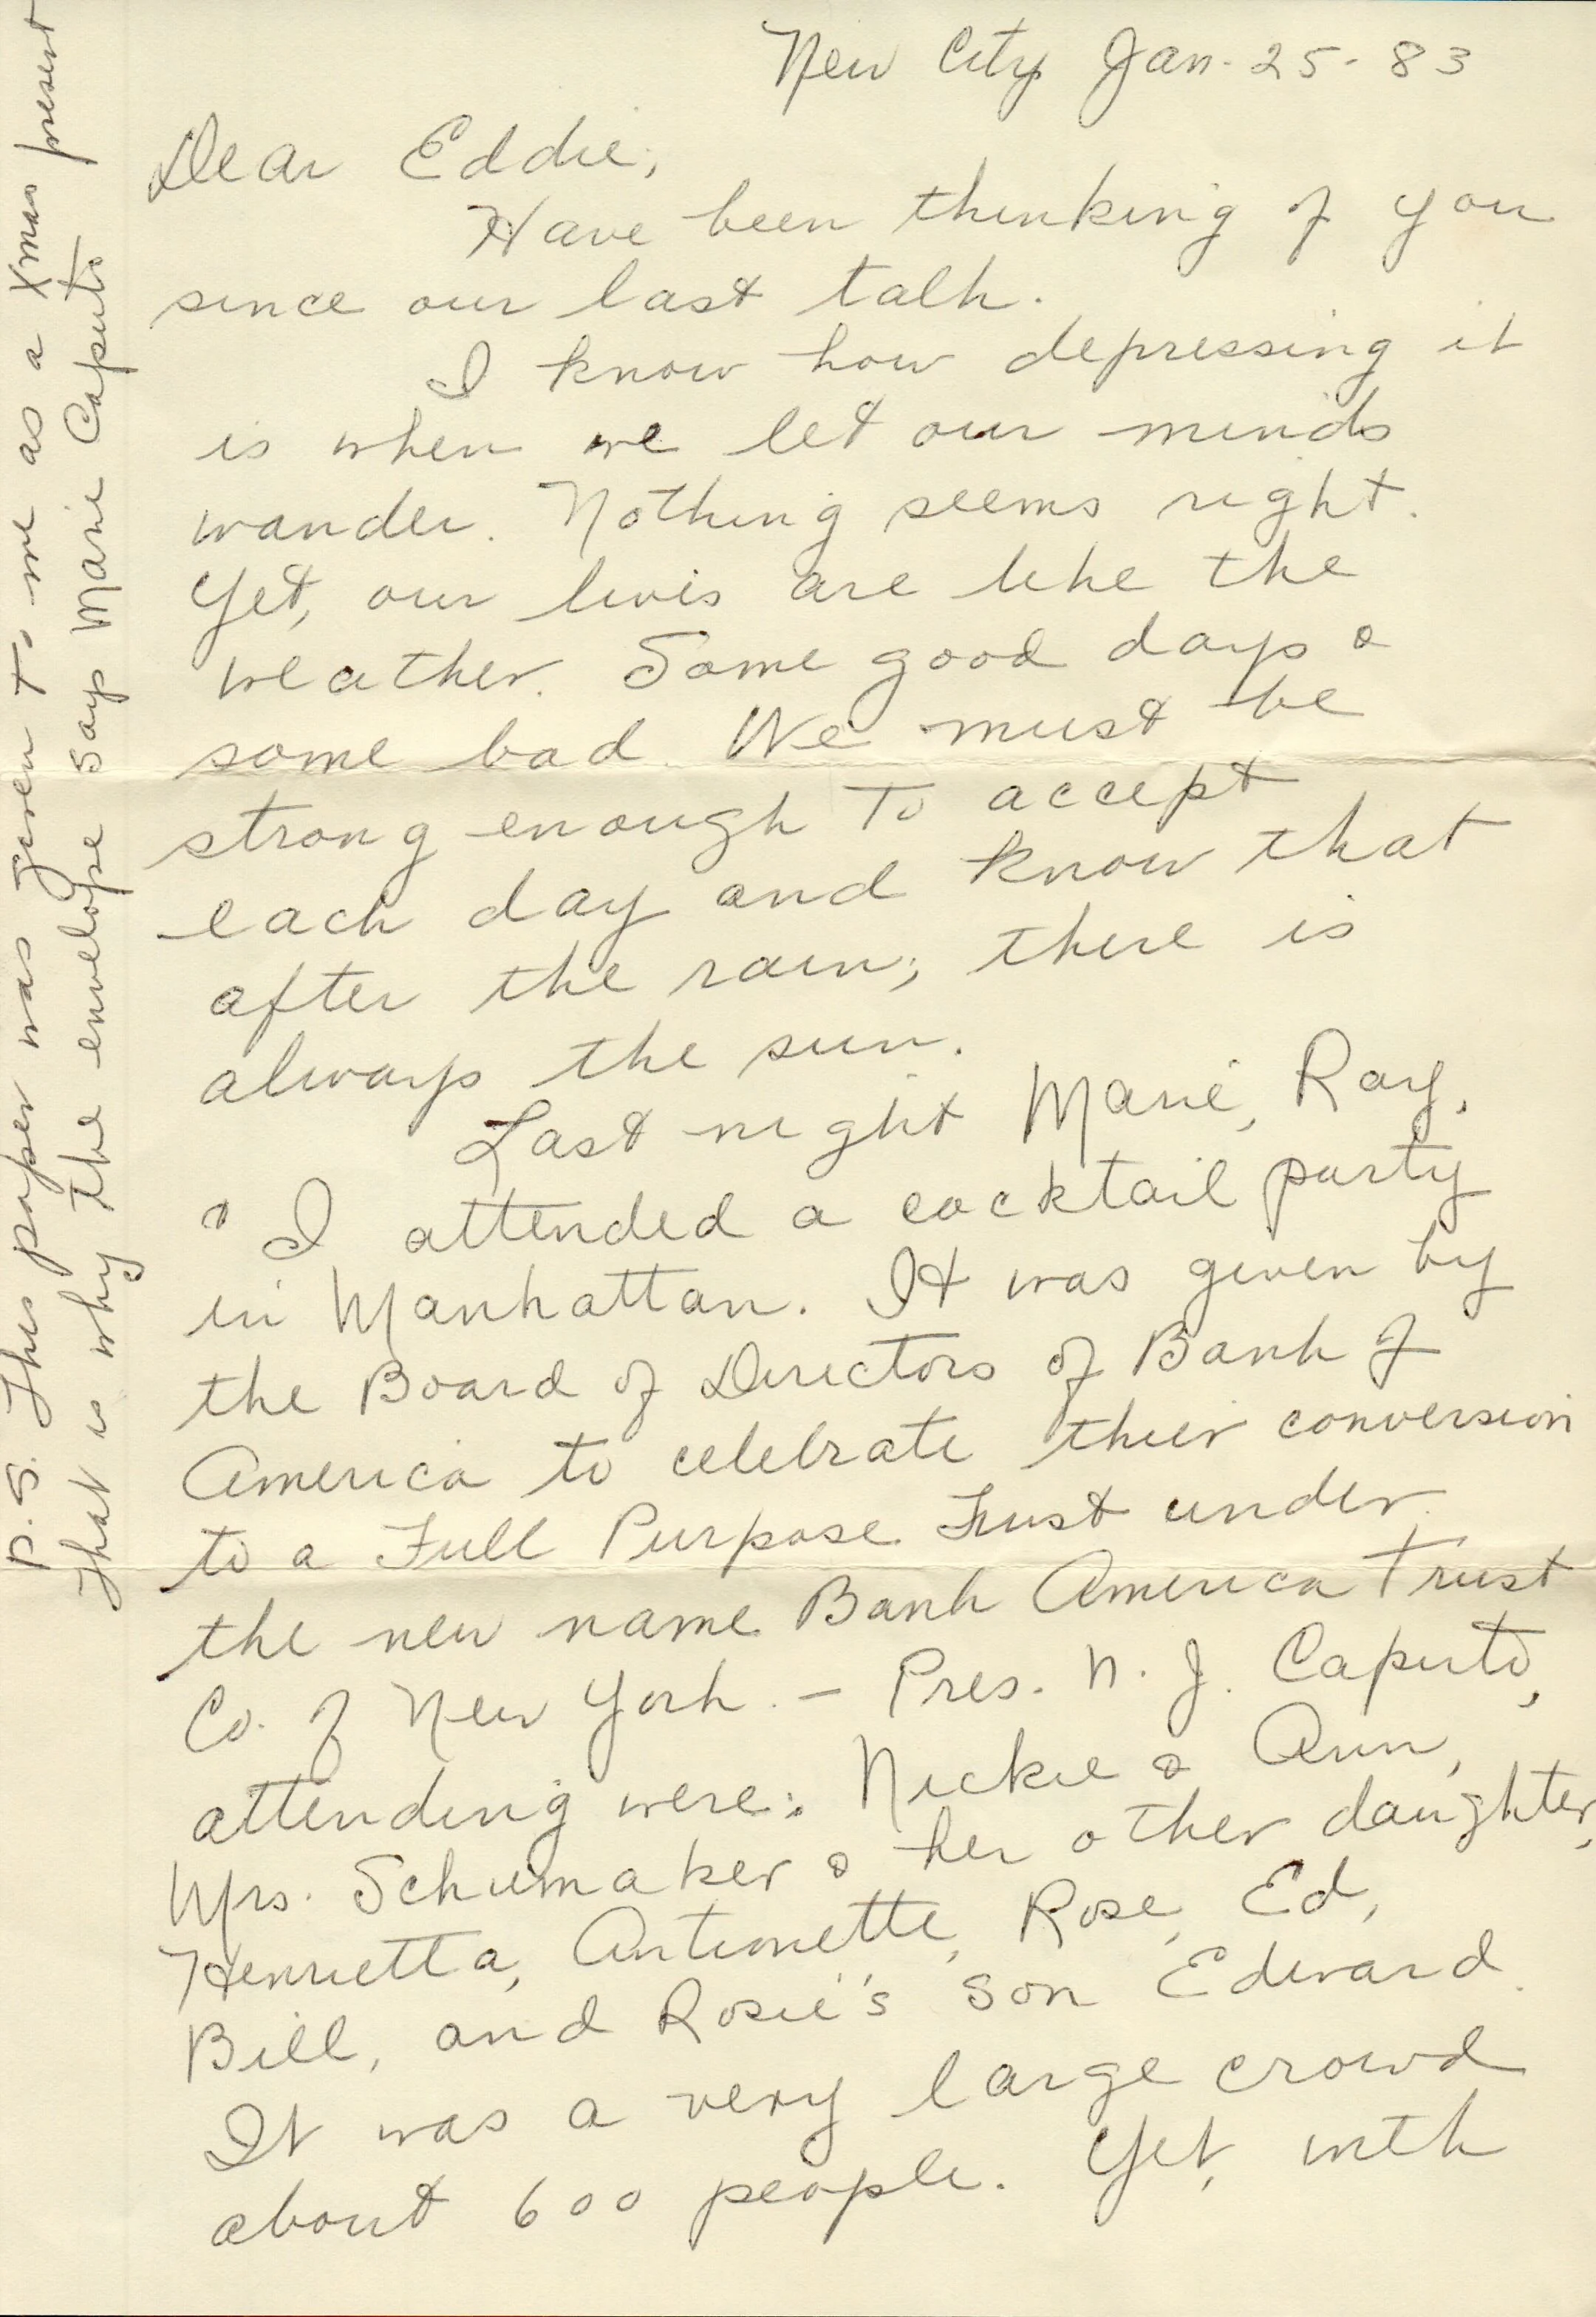 New City Jan. 25 - 83
Dear Eddie,
Have been thinking of you
since our last talk.
I know how depressing it
is when we let our minds
wander. Nothing seems right.
Yet, our lives are like the
weather. Some good days &
some bad. We must be
strong enough to accept
each day and know that
after the rain, there is
always the sun.
Last night Marie, Ray,
& I attended a cocktail party
in Manhattan. It was given by
the Board of Directors of Bank of
America to celebrate their conversion
to a Full Purpose Trust under
the new name Bank America Trust
Co. of New York. - Pres. N. J. Caputo,
attending were: Nickie & Ann,
Mrs. Schumaker & her other daughter,
Henrietta, Antionette, Rose, Ed,
Bill, and Rosie's son Edward.
It was a very large crowd
about 600 people. Yet, with
P.S. This paper was given to me as a Xmas present
That is why the envelope says Marie Caputo